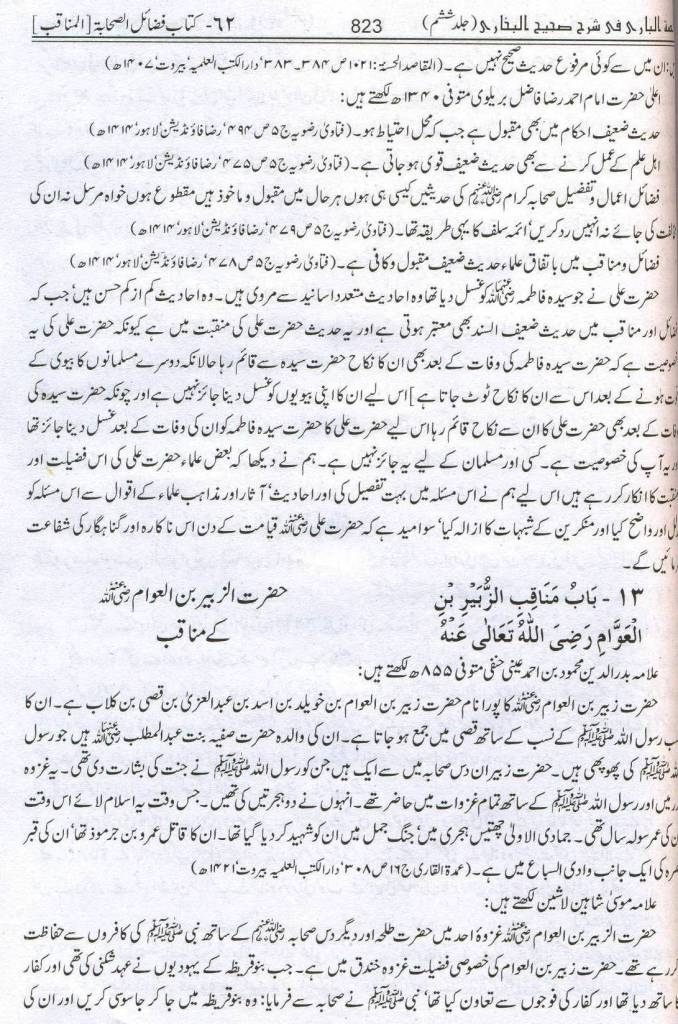 ۃ الباری فی شرح صحیح البخاری (جلد ششم) 823 ۶۲- کتاب فضائل الصحابۃ [المناقب]
ہیں: ان میں سے کوئی مرفوع حدیث صحیح نہیں ہے۔ (المقاصد الحسنۃ: ۱۰۲۱ ص ۳۸۴۔۳۸۳، دار الکتب العلمیہ، بیروت، ۱۴۰۷ھ)
اعلیٰ حضرت امام احمد رضا فاضل بریلوی متوفی ۱۳۴۰ھ لکھتے ہیں:
حدیث ضعیف احکام میں بھی مقبول ہے جب کہ محل احتیاط ہو۔ (فتاویٰ رضویہ ج ۵ ص ۴۹۴، رضا فاؤنڈیشن، لاہور، ۱۴۱۴ھ)
اہل علم کے عمل کرنے سے بھی حدیث ضعیف قوی ہو جاتی ہے۔ (فتاویٰ رضویہ ج ۵ ص ۴۷۵، رضا فاؤنڈیشن، لاہور، ۱۴۱۴ھ)
فضائل اعمال و تفضیل صحابہ کرام رضی اللہ عنہم کی حدیثیں کیسی ہی ہوں ہر حال میں مقبول و ماخوذ ہیں مقطوع ہوں خواہ مرسل نہ ان کی
مخالفت کی جائے نہ انہیں رد کریں، ائمہ سلف کا یہی طریقہ تھا۔ (فتاویٰ رضویہ ج ۵ ص ۴۷۹، رضا فاؤنڈیشن، لاہور، ۱۴۱۴ھ)
فضائل و مناقب میں باتفاق علماء حدیث ضعیف مقبول و کافی ہے۔ (فتاویٰ رضویہ ج ۵ ص ۴۷۸، رضا فاؤنڈیشن، لاہور، ۱۴۱۴ھ)
حضرت علی نے جو سیدہ فاطمہ رضی اللہ عنہا کو غسل دیا تھا وہ احادیث متعدد اسانید سے مروی ہیں۔ وہ احادیث کم از کم حسن ہیں، جب کہ
فضائل اور مناقب میں حدیث ضعیف السند بھی معتبر ہوتی ہے اور یہ حدیث حضرت علی کی منقبت میں ہے کیونکہ حضرت علی کی یہ
خصوصیت ہے کہ حضرت سیدہ فاطمہ کی وفات کے بعد بھی ان کا نکاح حضرت سیدہ سے قائم رہا حالانکہ دوسرے مسلمانوں کا بیوی کے
فوت ہونے کے بعد اس سے ان کا نکاح ٹوٹ جاتا ہے] اس لیے ان کا اپنی بیویوں کو غسل دینا جائز نہیں ہے اور چونکہ حضرت سیدہ کی
وفات کے بعد بھی حضرت علی کا ان سے نکاح قائم رہا اس لیے حضرت علی کا حضرت سیدہ فاطمہ کو ان کی وفات کے بعد غسل دینا جائز تھا
اور یہ آپ کی خصوصیت ہے۔ کسی اور مسلمان کے لیے یہ جائز نہیں ہے۔ ہم نے دیکھا کہ بعض علماء حضرت علی کی اس فضیلت اور
منقبت کا انکار کر رہے ہیں اس لیے ہم نے اس مسئلہ میں بہت تفصیل کی اور احادیث، آثار اور مذاہب علماء کے اقوال سے اس مسئلہ کو
اور واضح کیا اور منکرین کے شبہات کا ازالہ کیا، سو امید ہے کہ حضرت علی رضی اللہ عنہ قیامت کے دن اس ناکارہ اور گناہگار کی شفاعت
فرمائیں گے۔
۱۳- بَابُ مَنَاقِبِ الزُّبَيْرِ بْنِ
الْعَوَّامِ رَضِیَ اللّٰهُ تَعَالٰی عَنْهُ
حضرت الزبیر بن العوام رضی اللہ عنہ
کے مناقب
علامہ بدر الدین محمود بن احمد عینی حنفی متوفی ۸۵۵ھ لکھتے ہیں:
حضرت زبیر بن العوام رضی اللہ عنہ کا پورا نام حضرت زبیر بن العوام بن خویلد بن اسد بن عبد العزیٰ بن قصی بن کلاب ہے۔ ان کا
نسب رسول اللہ ﷺ کے نسب کے ساتھ قصی میں جمع ہو جاتا ہے۔ ان کی والدہ حضرت صفیہ بنت عبد المطلب رضی اللہ عنہا ہیں جو رسول
اللہ ﷺ کی پھوپھی ہیں۔ حضرت زبیر ان دس صحابہ میں سے ایک ہیں جن کو رسول اللہ ﷺ نے جنت کی بشارت دی تھی۔ یہ غزوہ
بدر میں اور رسول اللہ ﷺ کے ساتھ تمام غزوات میں حاضر تھے۔ انہوں نے دو ہجرتیں کی تھیں۔ جس وقت یہ اسلام لائے اس وقت
ان کی عمر سولہ سال تھی۔ جمادی الاولیٰ چھتیس ہجری میں، جنگ جمل میں ان کو شہید کر دیا گیا تھا۔ ان کا قاتل عمرو بن جرموز تھا، ان کی قبر
بصرہ کی ایک جانب وادی السباع میں ہے۔ (عمدۃ القاری ج ۱۶ ص ۳۰۸، دار الکتب العلمیہ، بیروت، ۱۴۲۱ھ)
علامہ موسیٰ شاہین لاشین لکھتے ہیں:
حضرت الزبیر بن العوام رضی اللہ عنہ غزوۂ احد میں حضرت طلحہ اور دیگر دس صحابہ رضی اللہ عنہم کے ساتھ نبی ﷺ کی کافروں سے حفاظت
کر رہے تھے۔ حضرت زبیر بن العوام کی خصوصی فضیلت غزوہ خندق میں ہے۔ جب بنو قریظہ کے یہودیوں نے عہد شکنی کی تھی اور کفار
کا ساتھ دیا تھا اور کفار کی فوجوں سے تعاون کیا تھا، نبی ﷺ نے صحابہ سے فرمایا: وہ بنو قریظہ میں جا کر جاسوسی کریں اور ان کی